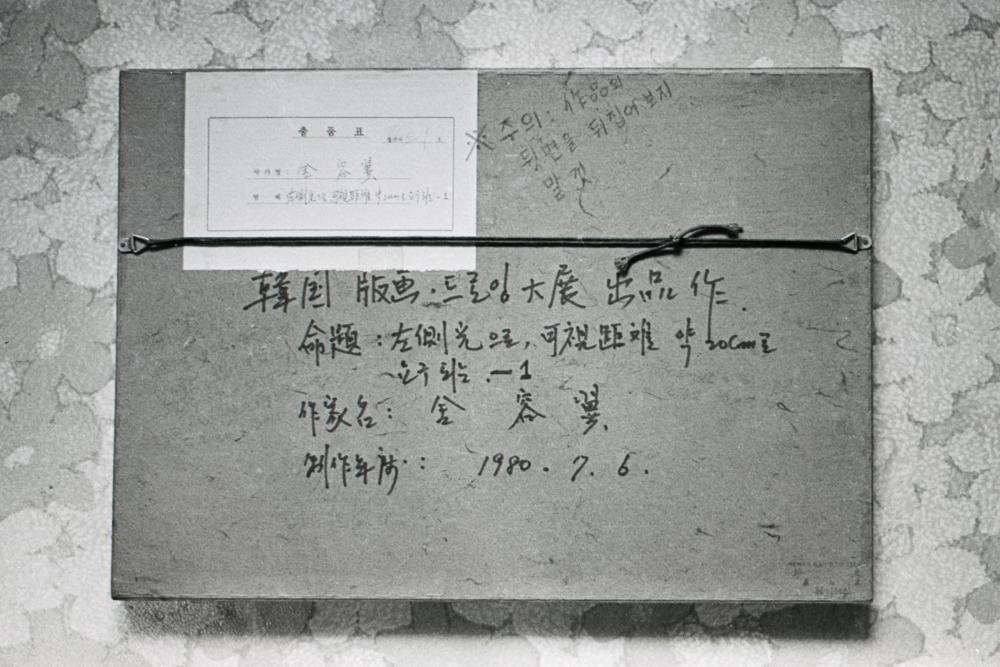 출품표
작가명: 金容翼
명 제 左側光으로 可視距離 약 20cm로 요구되는 -1
※ 주의: 作品의
뒷면을 뒤집어 보지
말 것
韓国 版画·드로잉 大展 出品作.
命題: 左側光으로, 可視距離 약 20cm로
요구되는 . -1
作家名: 金容翼.
創作年月: 1980. 7. 6.